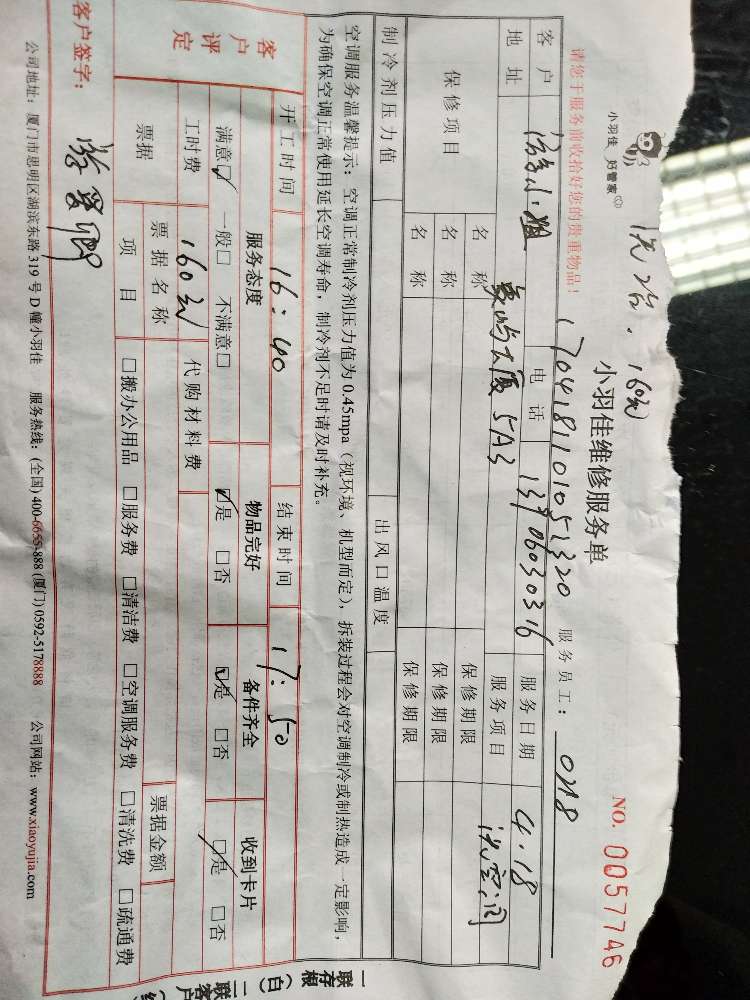 小羽佳 好管家
洗2台. 160元
小羽佳维修服务单
NO. 0057746
请您于服务前收拾好您的贵重物品!
1704181101051320
服务员工: 0718
客户 游小姐 电话 13906030316 服务日期 4.18
地址 大厦5A3 服务项目 洗空调
保修项目 名称 保修期限
名称 保修期限
名称 保修期限
制冷剂压力值 出风口温度
空调服务温馨提示: 空调正常制冷剂压力值为0.45mpa(视环境、机型而定), 拆装过程会对空调制冷或制热造成一定影响,
为确保空调正常使用延长空调寿命, 制冷剂不足时请及时补充。
开工时间 16:40 结束时间 17:50
客户评定 服务态度 物品完好 备件齐全 收到卡片
满意☑ 一般□ 不满意□ ☑是 □否 ☑是 □否 ☑是 □否
工时费 160元 代购材料费
票据 票据名称 票据金额
项目 □搬办公用品 □服务费 □清洁费 □空调服务费 □清洗费 □疏通费
客户签字:
公司地址: 厦门市思明区湖滨东路319号D幢小羽佳 服务热线: (全国) 400-6655-888 (厦门) 0592-5178888 公司网站: www.xiaoyujia.com
一联存根(白) 二联客户